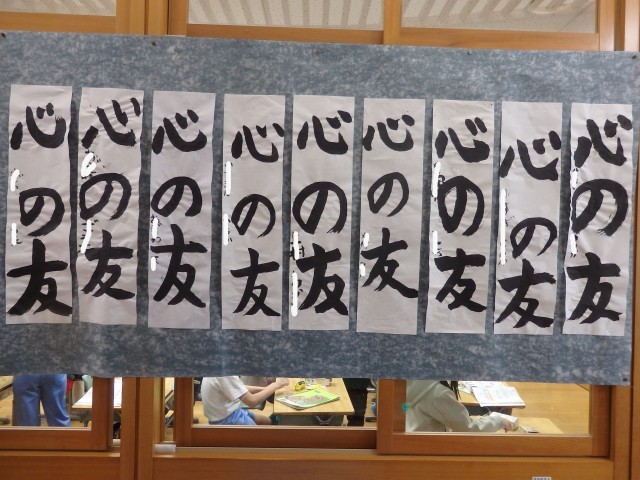 心の友
心の友
心の友
心の友
心の友
心の友
心の友
心の友
心の友